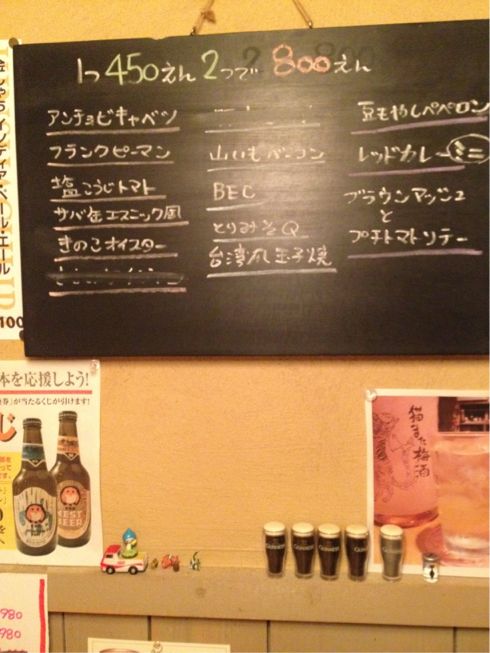 1つ450えん 2つで 800えん
アンチョビキャベツ
フランクピーマン
塩こうじトマト
サバ缶エスニック風
きのこオイスター
山いもベーコン
BEC
とりみそQ
台湾風玉子焼
豆もやしペペロン
レッドカレーミニ
ブラウンマッシュ
と
プチトマトソテー
インディア・ペールエール
100
本を応援しよう!
が当たるくじが引けます!
じ
NEST
BEER
猫また梅酒
GUINNESS
GUINNESS
GUINNESS
GUINNESS
980
980